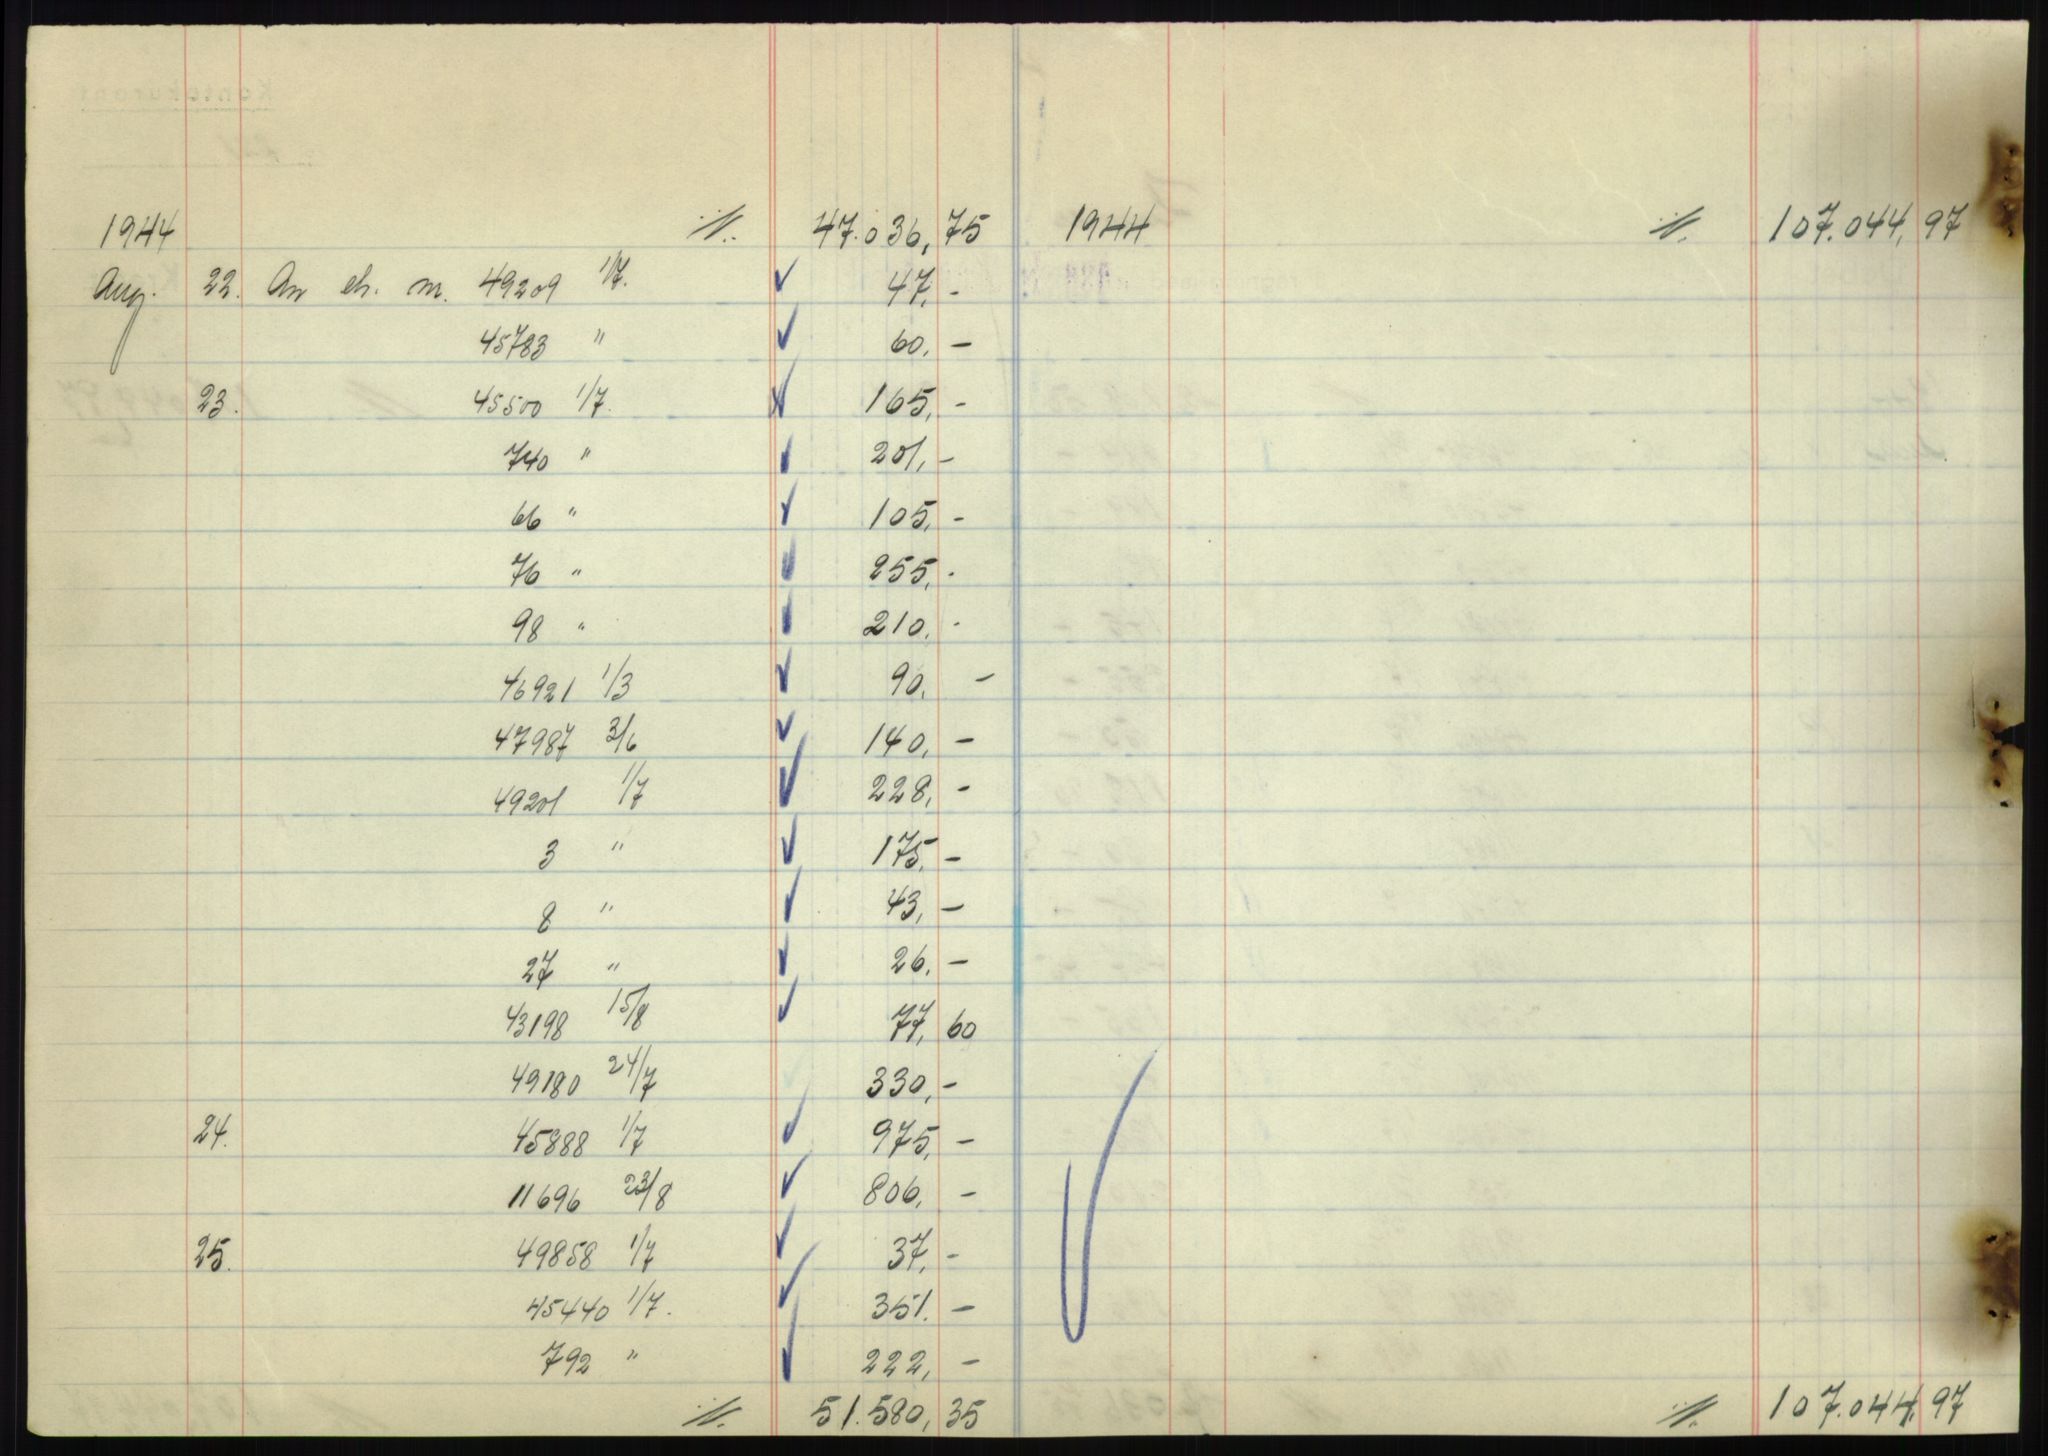 1944 ./. 47.036,75 1944 ./. 107.044,97
Aug. 22. An ch. m. 49209 1/7. 47,-
45783 " 60,-
23. 45500 1/7. 165,-
740 " 201,-
66 " 105,-
76 " 255,-
98 " 210,-
46921 1/3 90,-
47987 3/6 140,-
49201 1/7 228,-
3 " 175,-
8 " 43,-
27 " 26,-
43198 15/8 77,60
49180 24/7 330,-
24. 45888 1/7 975,-
11696 23/8 806,-
25. 49858 1/7 37,-
45440 1/7. 351.-
792 " 222,-
./. 51.580,35 ./. 107.044,97